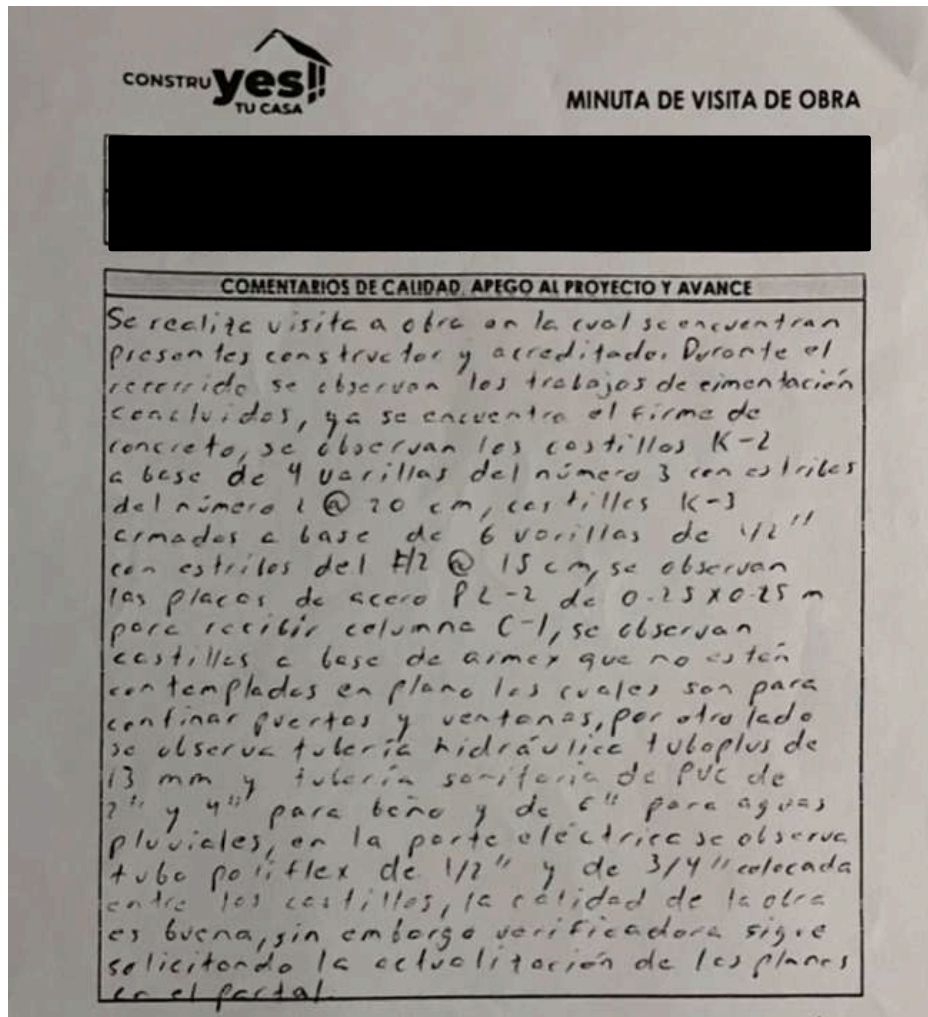 CONSTRUyes!!
TU CASA
MINUTA DE VISITA DE OBRA
COMENTARIOS DE CALIDAD, APEGO AL PROYECTO Y AVANCE
Se realiza visita a obra en la cual se encuentran
presentes constructor y acreditado. Durante el
recorrido se observan los trabajos de cimentación
concluidos, ya se encuentra el firme de
concreto, se observan los castillos K-2
a base de 4 varillas del número 3 con estribos
del número 2 @ 20 cm, castillos K-3
armados a base de 6 varillas de 1/2"
con estribos del #2 @ 15 cm, se observan
las placas de acero PL-2 de 0.25 x 0.25 m
para recibir columna C-1, se observan
castillos a base de armex que no están
contemplados en plano los cuales son para
confinar puertas y ventanas, por otro lado
se observa tubería hidráulica tuboplus de
13 mm y tubería sanitaria de PVC de
2" y 4" para baño y de 6" para aguas
pluviales, en la parte eléctrica se observa
tubo poliflex de 1/2" y de 3/4" colocada
entre los castillos, la calidad de la obra
es buena, sin embargo verificadora sigue
solicitando la actualización de los planos
en el portal.